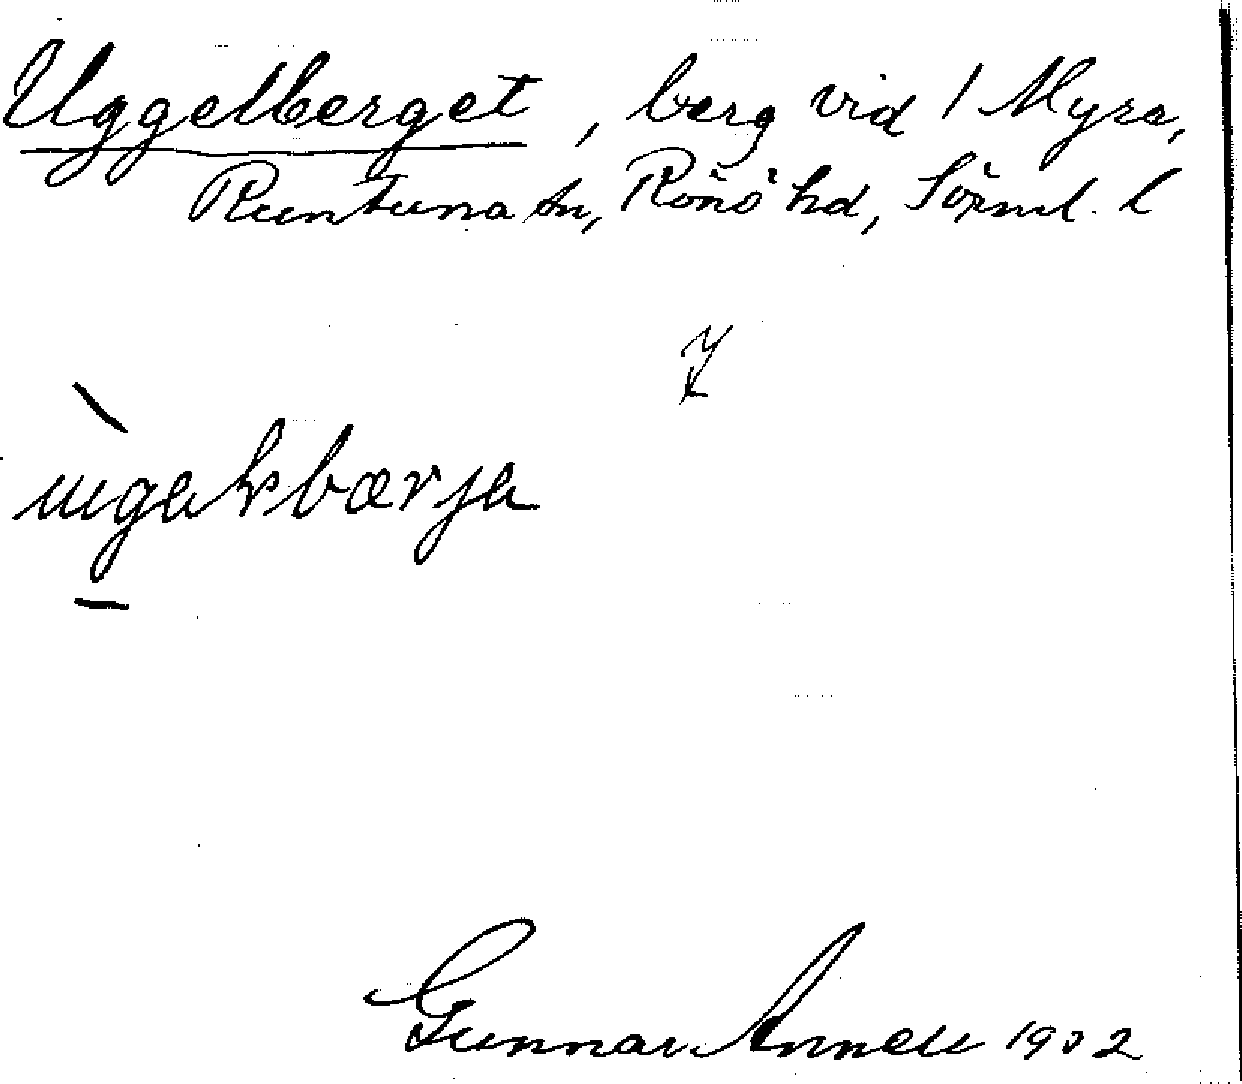 Uggelberget, berg vid / Myra,
Runtuna sn, Rönö hd, Sörml. l
Gunnar Annell 1902